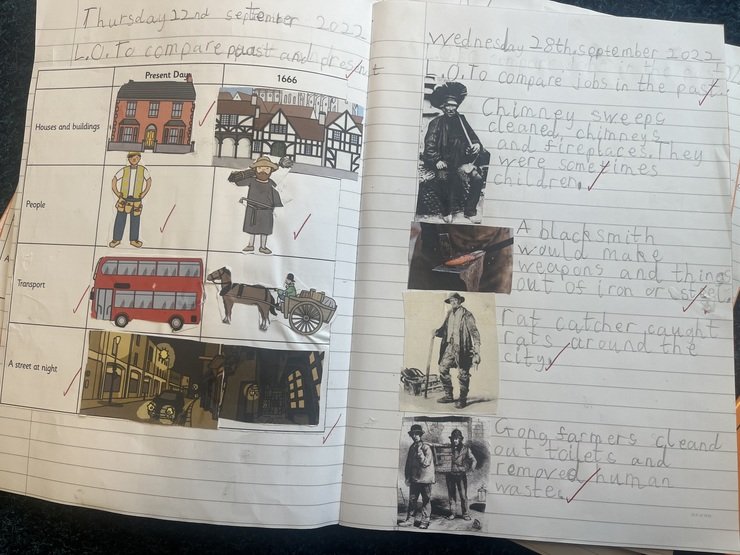 Thursday 22nd september 2022
L.O. To compare past and present
Present Day 1666
Houses and buildings
People
Transport
A street at night
Wednesday 28th september 2022
L.O. To compare jobs in the past.
Chimney sweeps
cleaned, chimneys
and fireplaces. They
were sometimes
children.
A blacksmith
would make
weapons and things
out of iron or steel.
rat catcher caught
rats around the
city.
Gong farmers cleand
out toilets and
removed human
waste.